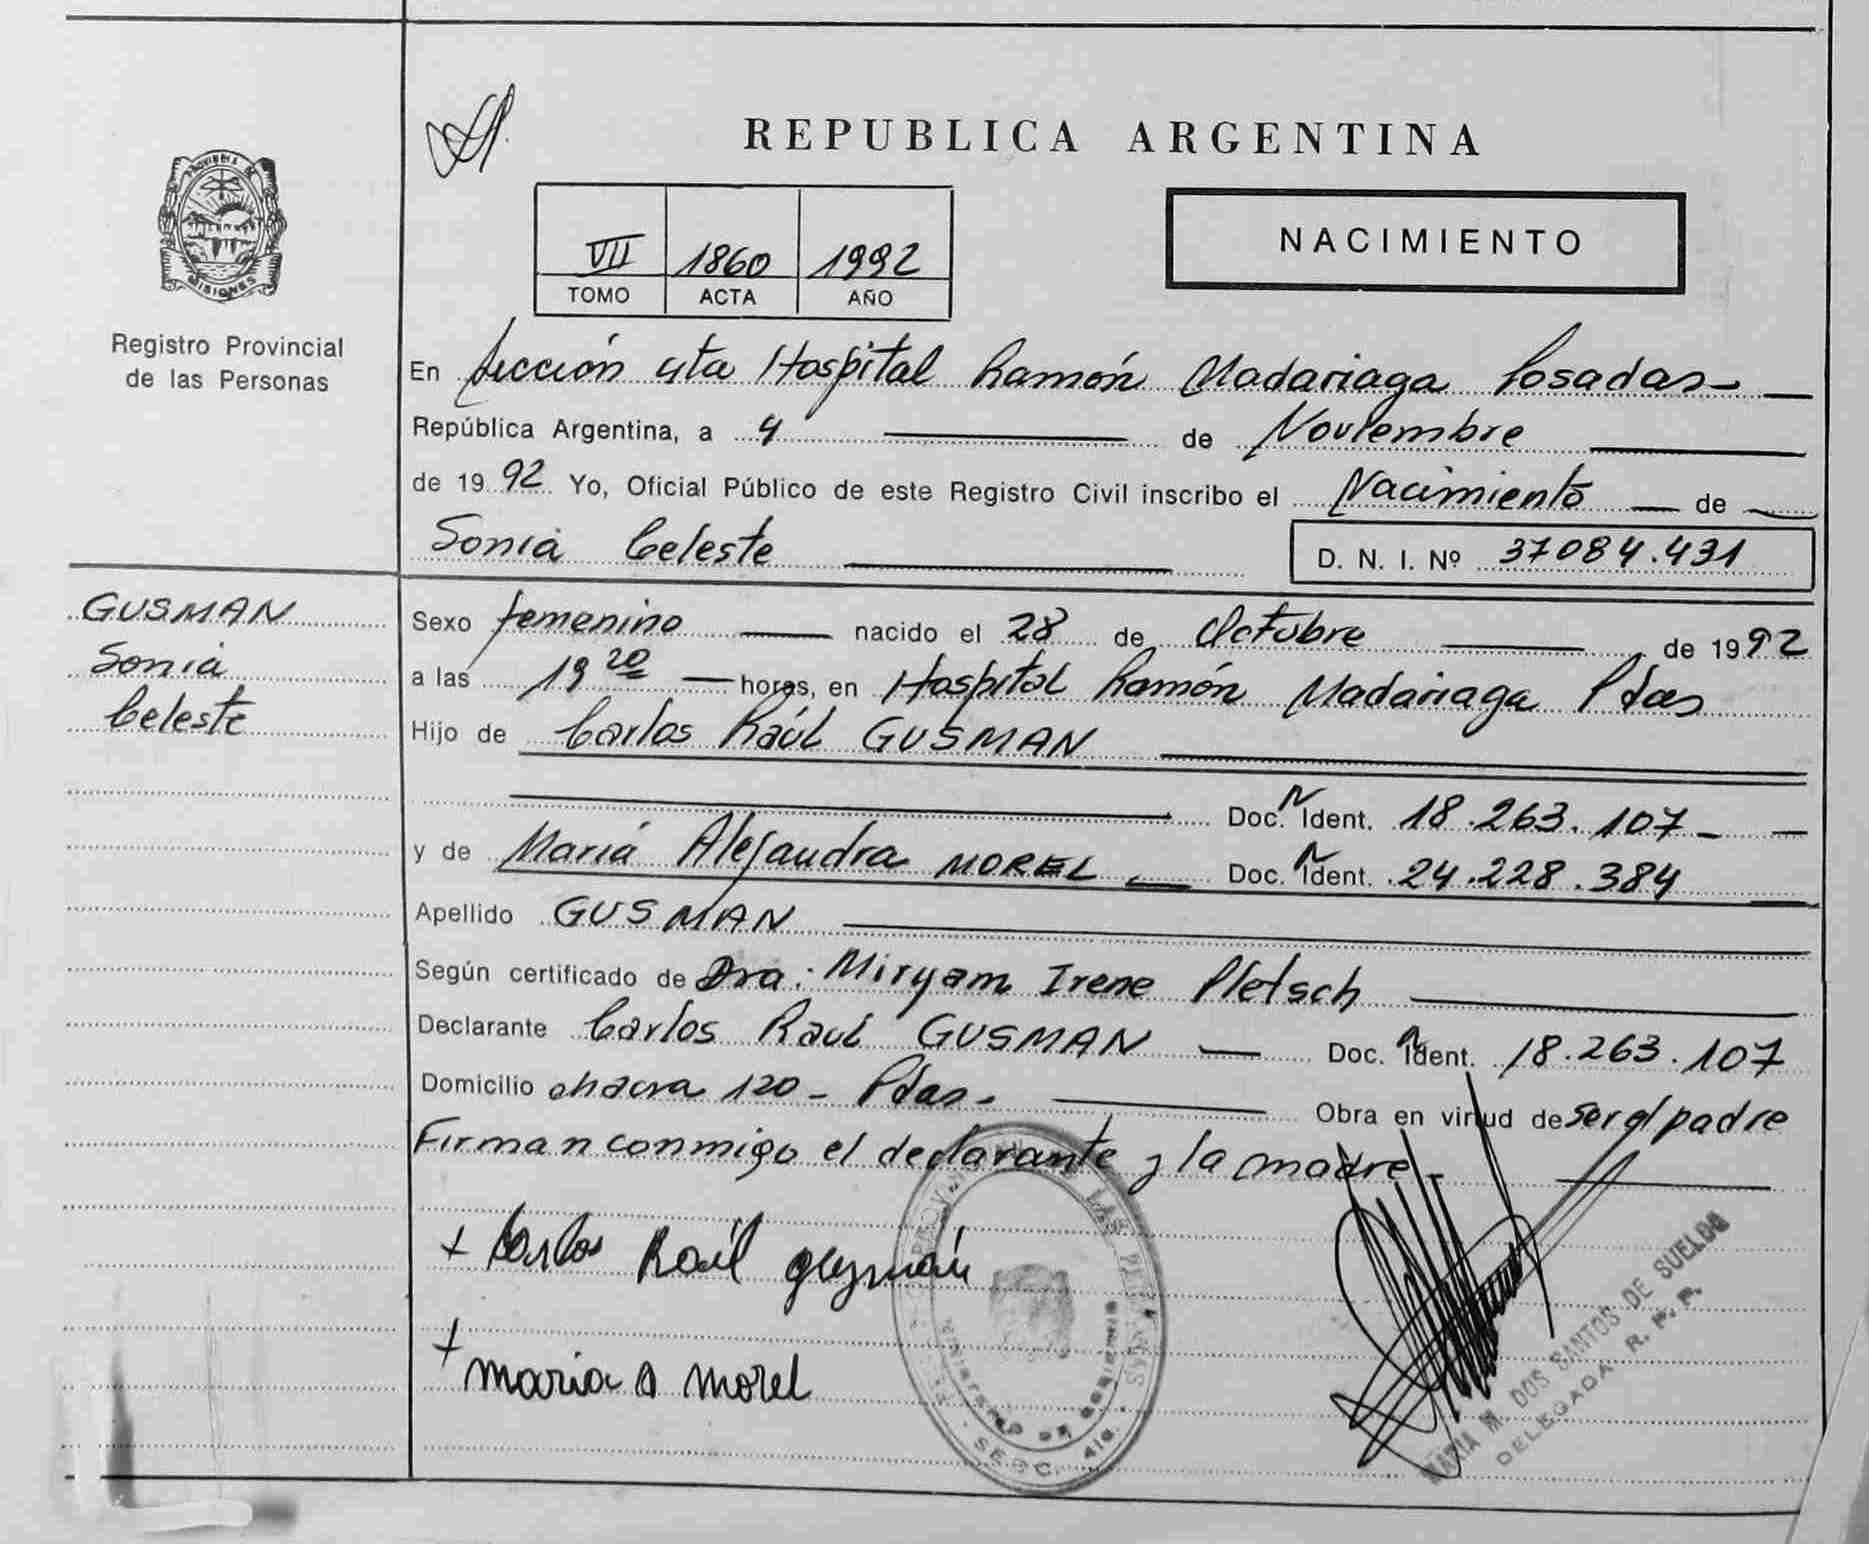 REPUBLICA ARGENTINA
PROVINCIA DE
MISIONES
Registro Provincial
de las Personas
VII 1860 1992
TOMO ACTA AÑO
NACIMIENTO
En Sección 4ta Hospital Ramón Madariaga Posadas
República Argentina, a 4 de Noviembre
de 1992 Yo, Oficial Público de este Registro Civil inscribo el Nacimiento de
Sonia Celeste D. N. I. Nº 37084.431
GUSMAN
Sonia
Celeste
Sexo femenino nacido el 28 de Octubre de 1992
a las 19 20 horas, en Hospital Ramón Madariaga Pdas
Hijo de Carlos Raúl GUSMAN
Doc. N Ident. 18.263.107
y de María Alejandra MOREL Doc. N Ident. 24.228.384
Apellido GUSMAN
Según certificado de Dra: Miryam Irene Pletsch
Declarante Carlos Raúl GUSMAN Doc. N Ident. 18.263.107
Domicilio chacra 120 - Pdas. Obra en virtud de ser el padre
Firman conmigo el declarante y la madre
+ Carlos Raúl guzmán
+ maria A morel
LAS PERSONAS
SECC. 4ta.
MARIA M. DOS SANTOS DE SUELDO
DELEGADA R. P. P.